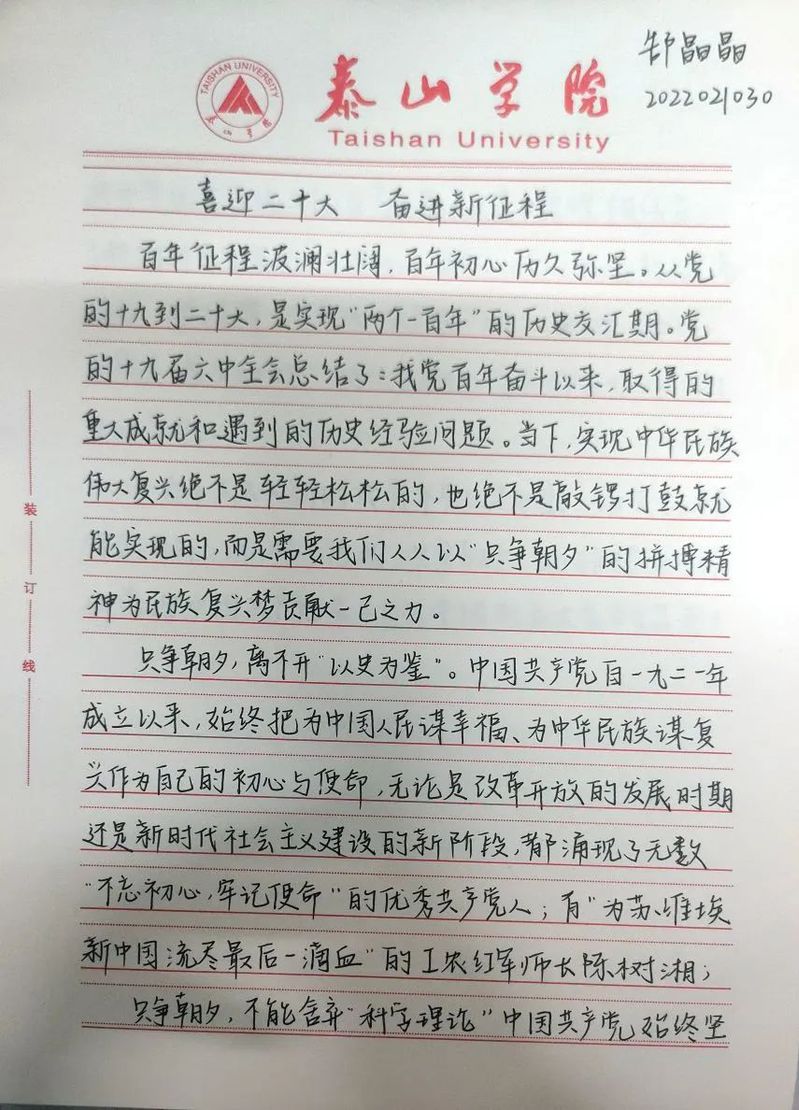 郜晶晶
2022021030
TAISHAN UNIVERSITY
泰山学院
泰山学院
Taishan University
喜迎二十大 奋进新征程
百年征程波澜壮阔，百年初心历久弥坚。从党
的十九到二十大，是实现“两个一百年”的历史交汇期。党
的十九届六中全会总结了：我党百年奋斗以来，取得的
重大成就和遇到的历史经验问题。当下，实现中华民族
伟大复兴绝不是轻轻松松的，也绝不是敲锣打鼓就
能实现的，而是需要我们人人以“只争朝夕”的拼搏精
神为民族复兴梦贡献一己之力。
只争朝夕，离不开“以史为鉴”。中国共产党自一九二一年
成立以来，始终把为中国人民谋幸福、为中华民族谋复
兴作为自己的初心与使命，无论是改革开放的发展时期
还是新时代社会主义建设的新阶段，都涌现了无数
“不忘初心，牢记使命”的优秀共产党人；有“为苏维埃
新中国流尽最后一滴血”的工农红军师长陈树湘；
只争朝夕，不能舍弃“科学理论”中国共产党始终坚
装
订
线